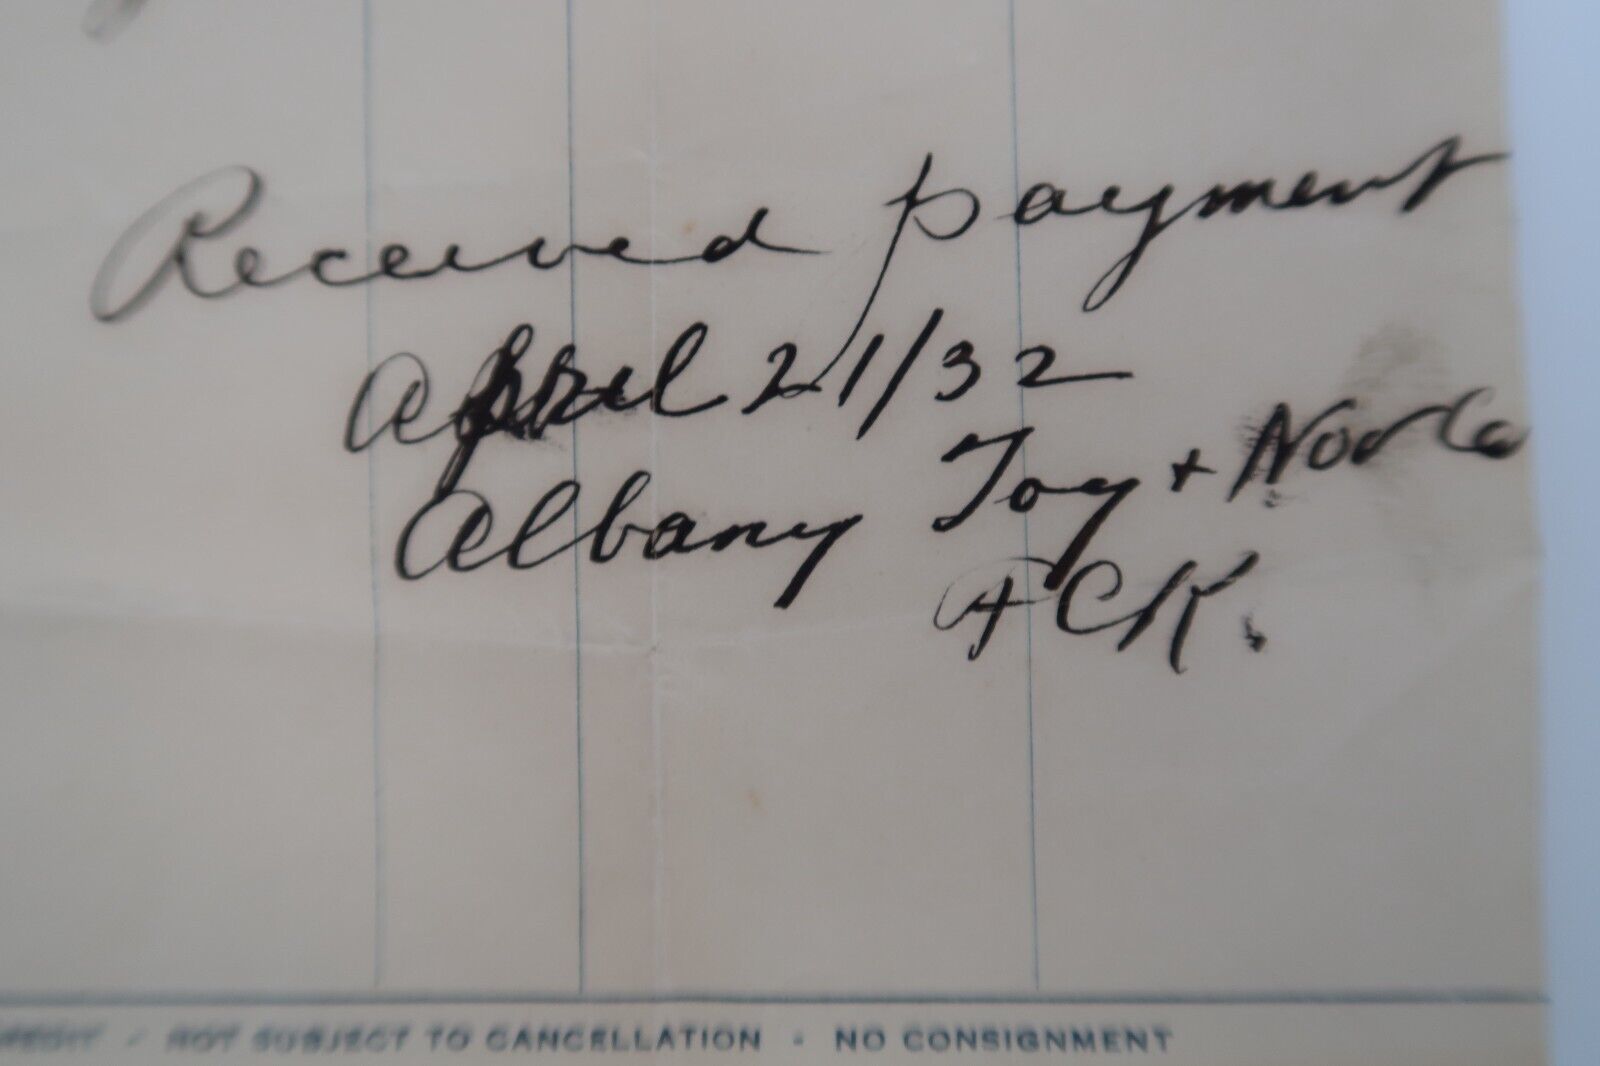 Received payment
April 21/32
Albany Toy + Nov Co
ACK.
NOT SUBJECT TO CANCELLATION - NO CONSIGNMENT